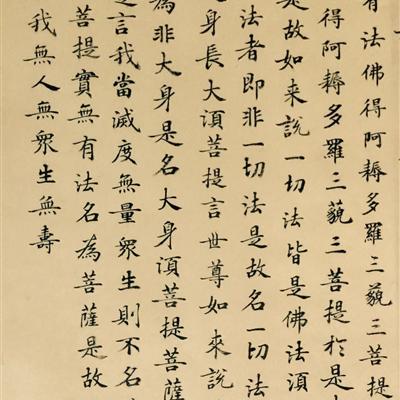 有法佛得阿耨多羅三藐三菩提
得阿耨多羅三藐三菩提於是
是故如來說一切法皆是佛法湏
法者即非一切法是故名一切法
身長大湏菩提言世尊如來說
為非大身是名大身湏菩提菩薩
是言我當滅度無量衆生則不名
菩提實無有法名為菩薩是故
我無人無衆生無壽